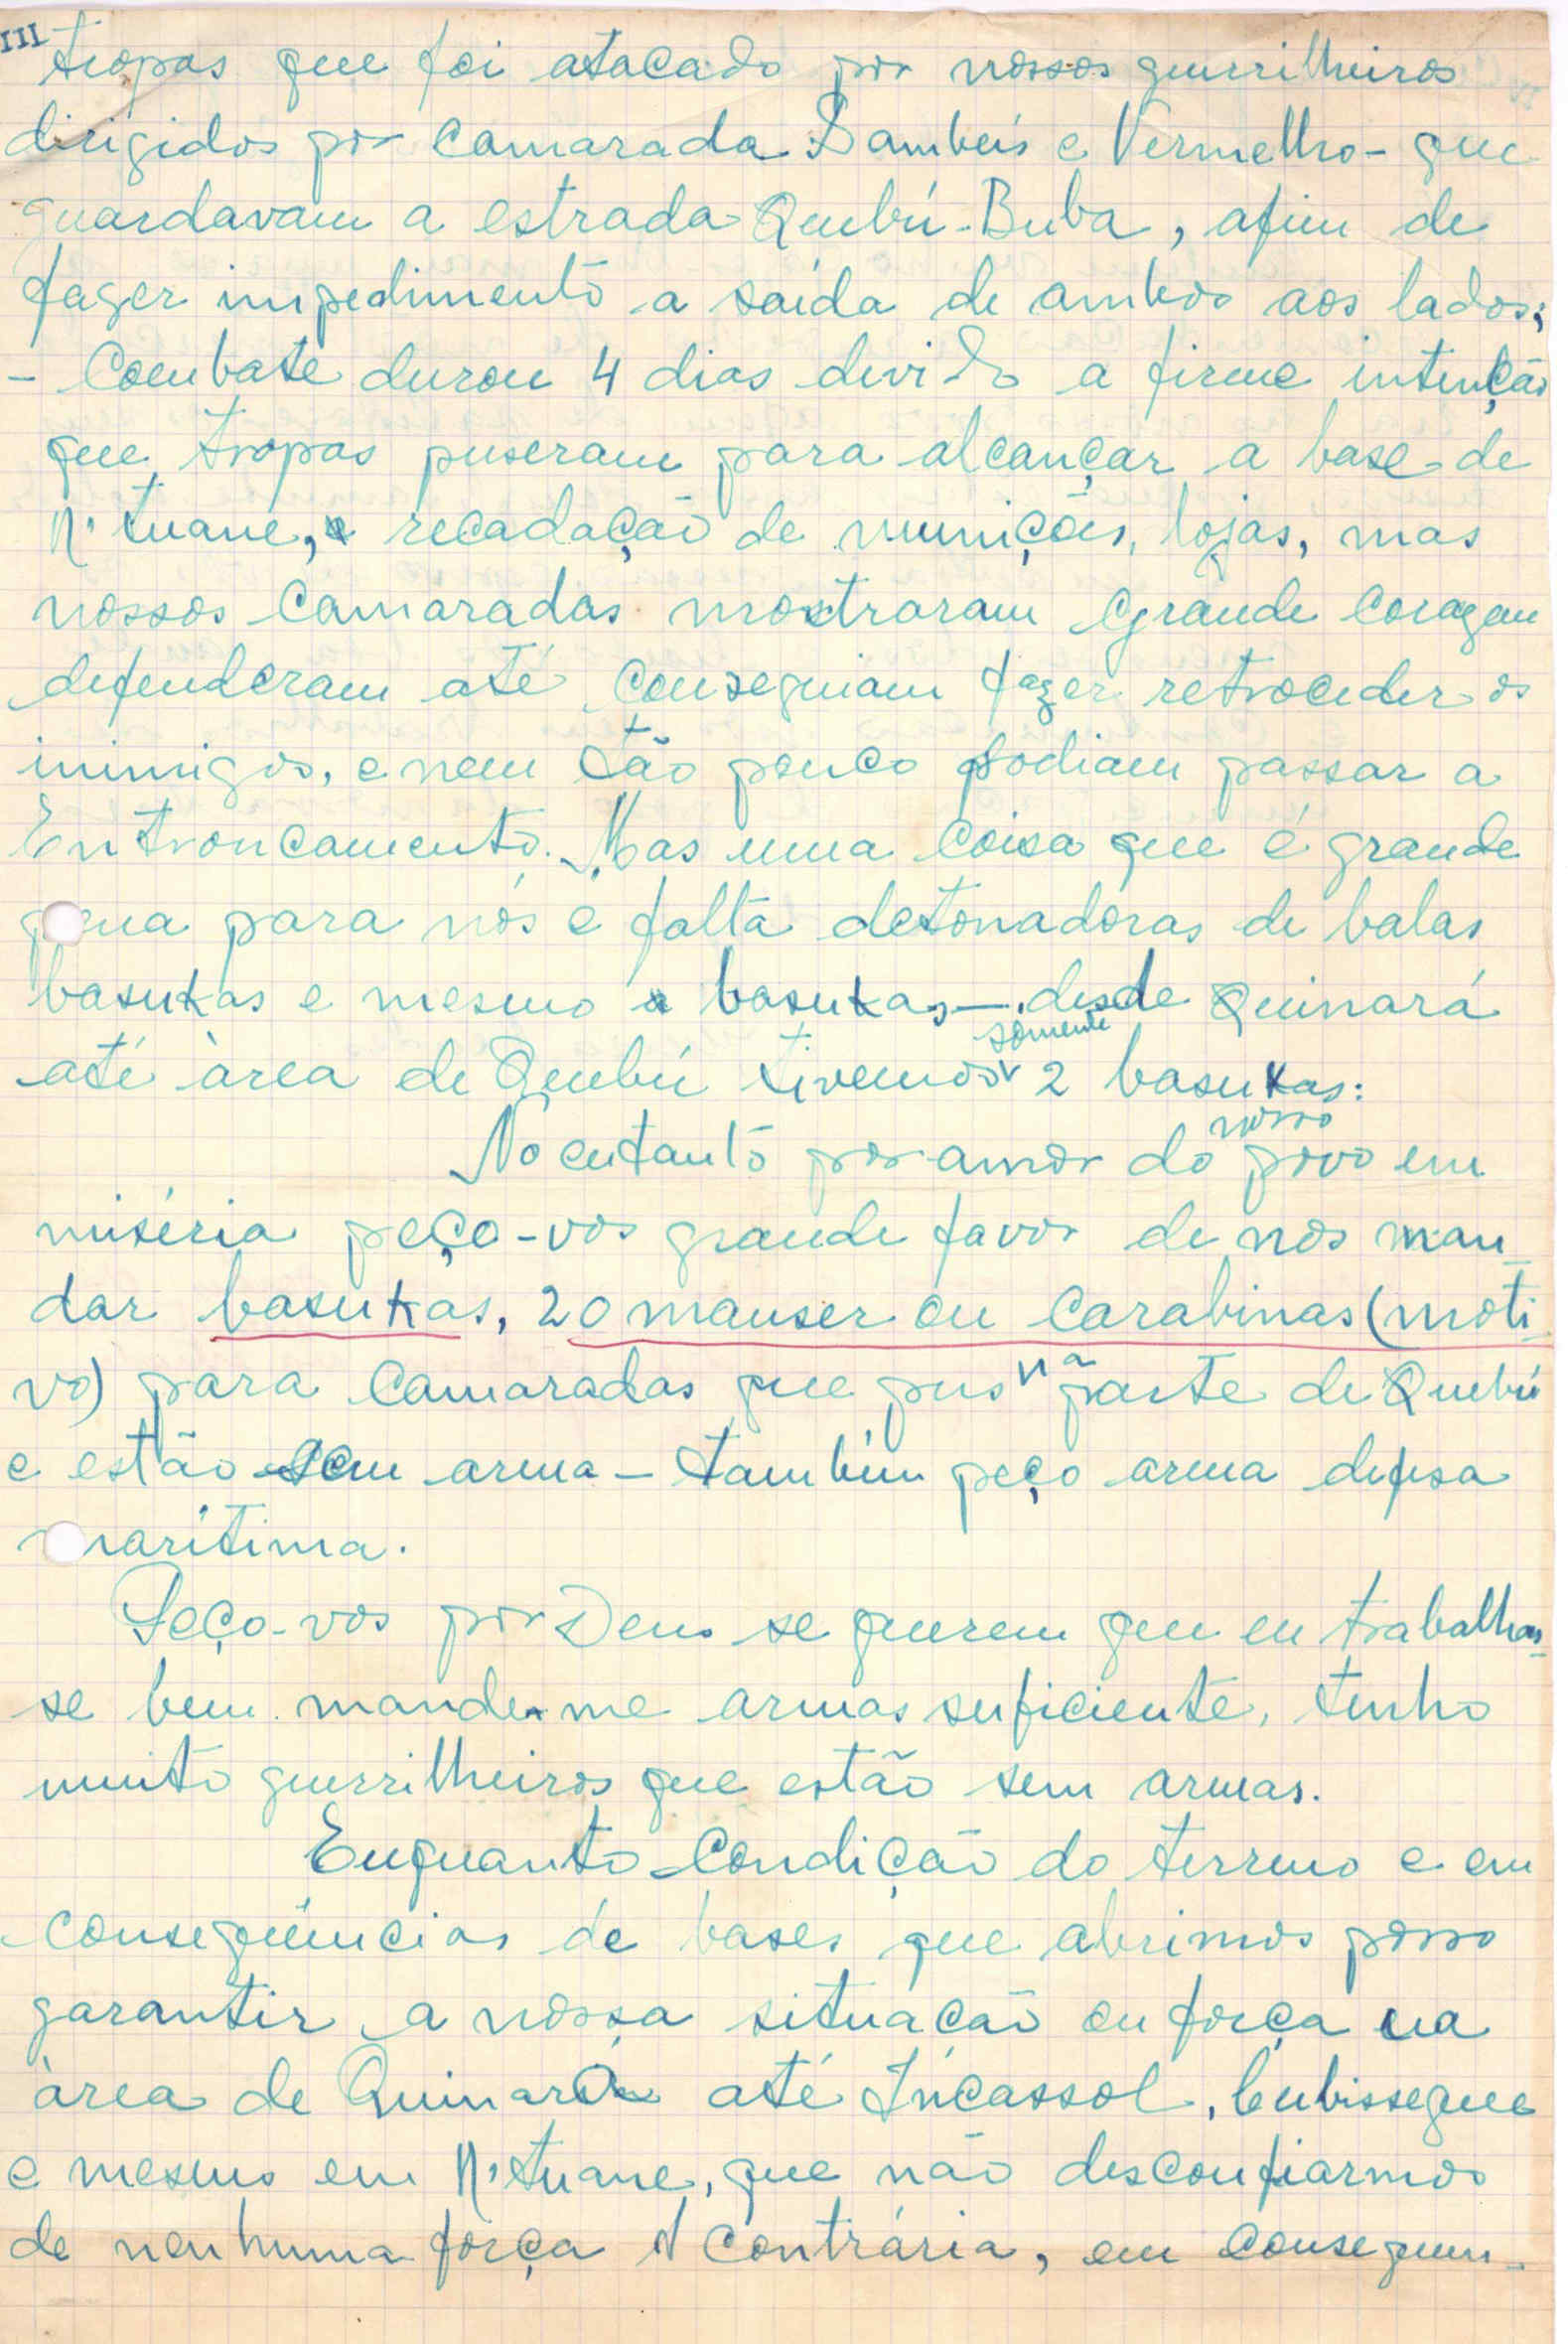 III
tropas que foi atacado por nossos guerrilheiros
dirigidos por camarada Dambéis e Vermelho - que
guardavam a estrada Quebú-Buba, afim de
fazer impedimento a saída de ambos aos lados;
- Combate durou 4 dias devido a firme intenção
que tropas puseram para alcançar a base de
N'tuane, recadação de munições, lojas, mas
nossos camaradas mostraram grande coragem
defenderam até conseguiam fazer retroceder os
inimigos, e nem tão pouco podiam passar a
Entroncamento. Mas uma coisa que é grande
pena para nós é falta detonadoras de balas
basukas e mesmo basukas, - desde Quinará
até àrea de Quebú tivemos somente 2 basukas:
No entanto por amor do nosso povo em
miséria peço-vos grande favor de nos man-
dar basukas, 20 mauser ou carabinas (moti-
vo) para camaradas que pus na parte de Quebú
e estão sem arma - também peço arma defesa
marítima.
Peço-vos por Deus se querem que eu trabalhas-
se bem mandem-me armas suficiente, tenho
muito guerrilheiros que estão sem armas.
Enquanto condição do terreno e em
conseqüências de bases que abrimos posso
garantir a nossa situação ou força na
àrea de Quinará até Incassol, Cubisseque
e mesmo em N'tuane, que não desconfiarmos
de nenhuma força contrária, em consequen-